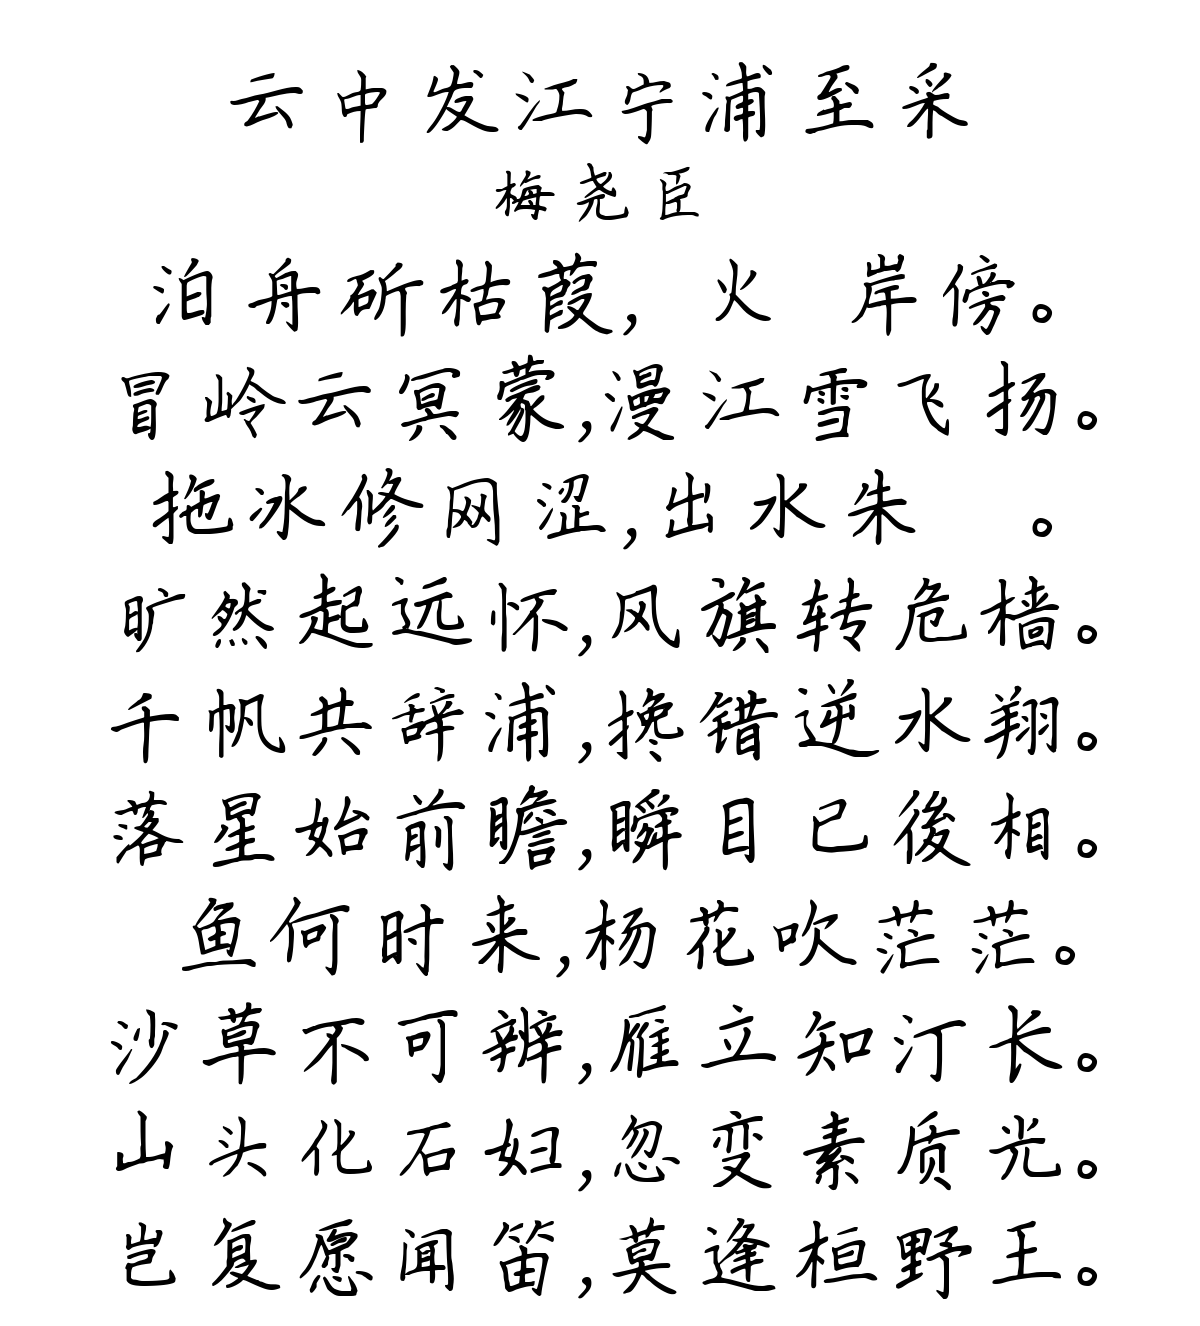 云中发江宁浦至采
梅尧臣
泊舟斫枯葭,火 岸傍。
冒岭云冥蒙,漫江雪飞扬。
拖冰修网涩,出水朱 。
旷然起远怀,风旗转危樯。
千帆共辞浦,搀错逆水翔。
落星始前瞻,瞬目已後相。
鱼何时来,杨花吹茫茫。
沙草不可辨,雁立知汀长。
山头化石妇,忽变素质光。
岂复愿闻笛,莫逢桓野王。